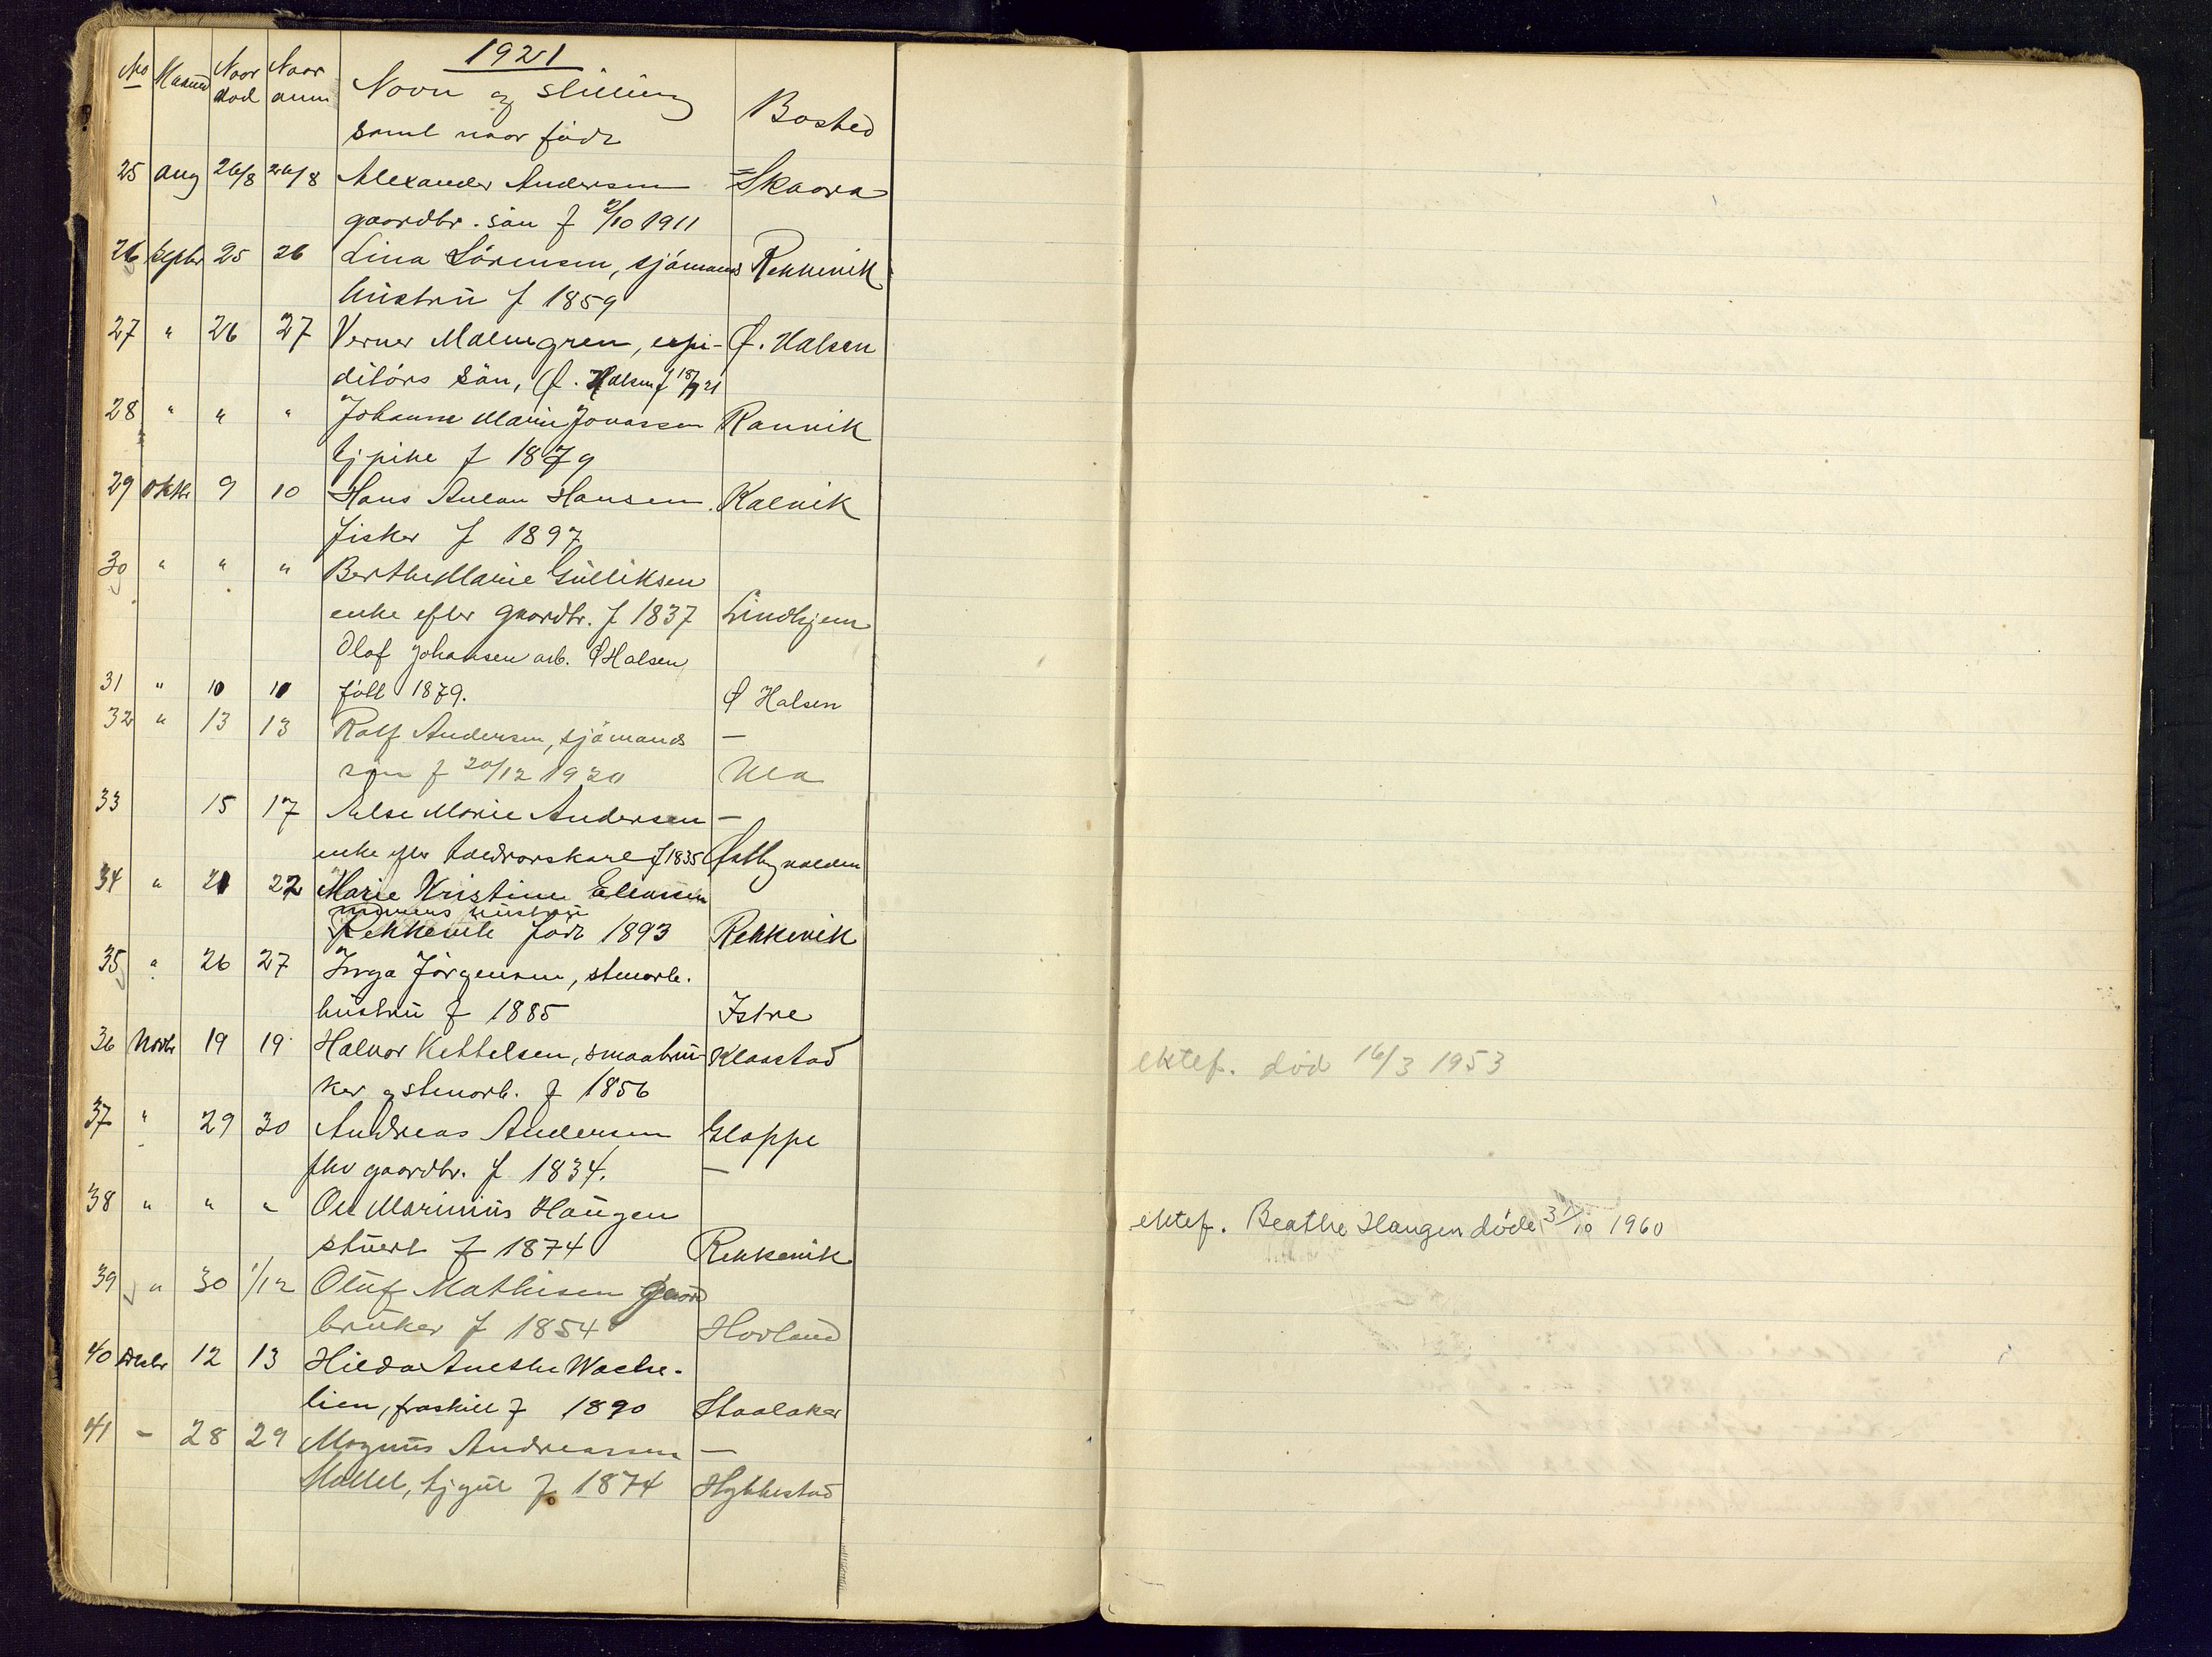 1921
No Maaned Naar død Naar anm Navn og stilling Bosted
samt naar född
25 aug 26/8 26/8 Alexander Andersen Skaara
gaardbr. sön f 2/10 1911
26 septbr 25 26 Lina Sörensen, sjömands Rekkevik
hustru f 1859
27 " 26 27 Verner Malmgren, expe- Ø. Halsen
ditörs sön, Ø. Halsen f 18/9 21
28 " " " Johanne Marie Jonassen Ranvik
tj pike f 1879
29 oktbr 9 10 Hans Anton Hansen Kalvik
fisker f 1897
30 " " " Berthe Marie Gulliksen
enke efter gaardbr. f 1837 Lindhjem
Olaf Johansen arb. Ø Halsen
31 " 10 10 född 1879. Ø Halsen
32 " 13 13 Rolf Andersen, sjömands —
søn f 20/12 1920 Ula
33 15 17 Else Marie Andersen —
enke efter f 1835 Østby
34 " 21 22 Marie Kristine Eliassen
hustru
Rekkevik född 1893 Rekkevik
35 " 26 27 Inga Jörgensen, stenarb.
hustru f 1885 Istre
36 Novbr 19 19 Halvor Kettelsen, smaabru- Klaastad
ker og stenarb. f 1856
37 " 29 30 Andreas Andersen Gloppe
fhv gaardbr. f 1834. —
38 " " " Ole Marinius Haugen
stuert f 1874 Rekkevik
39 " 30 1/12 Oluf Mathisen gaard
bruker f 1854 Hovland
40 Desbr 12 13 Hilda Anethe Wache-
lien, fraskilt f 1890 Haalaker
41 - 28 29 Magnus Andreassen —
tjgut f 1874 Hybbestad
ektef. död 16/3 1953
ektef. Beathe Haugen døde 31/10 1960